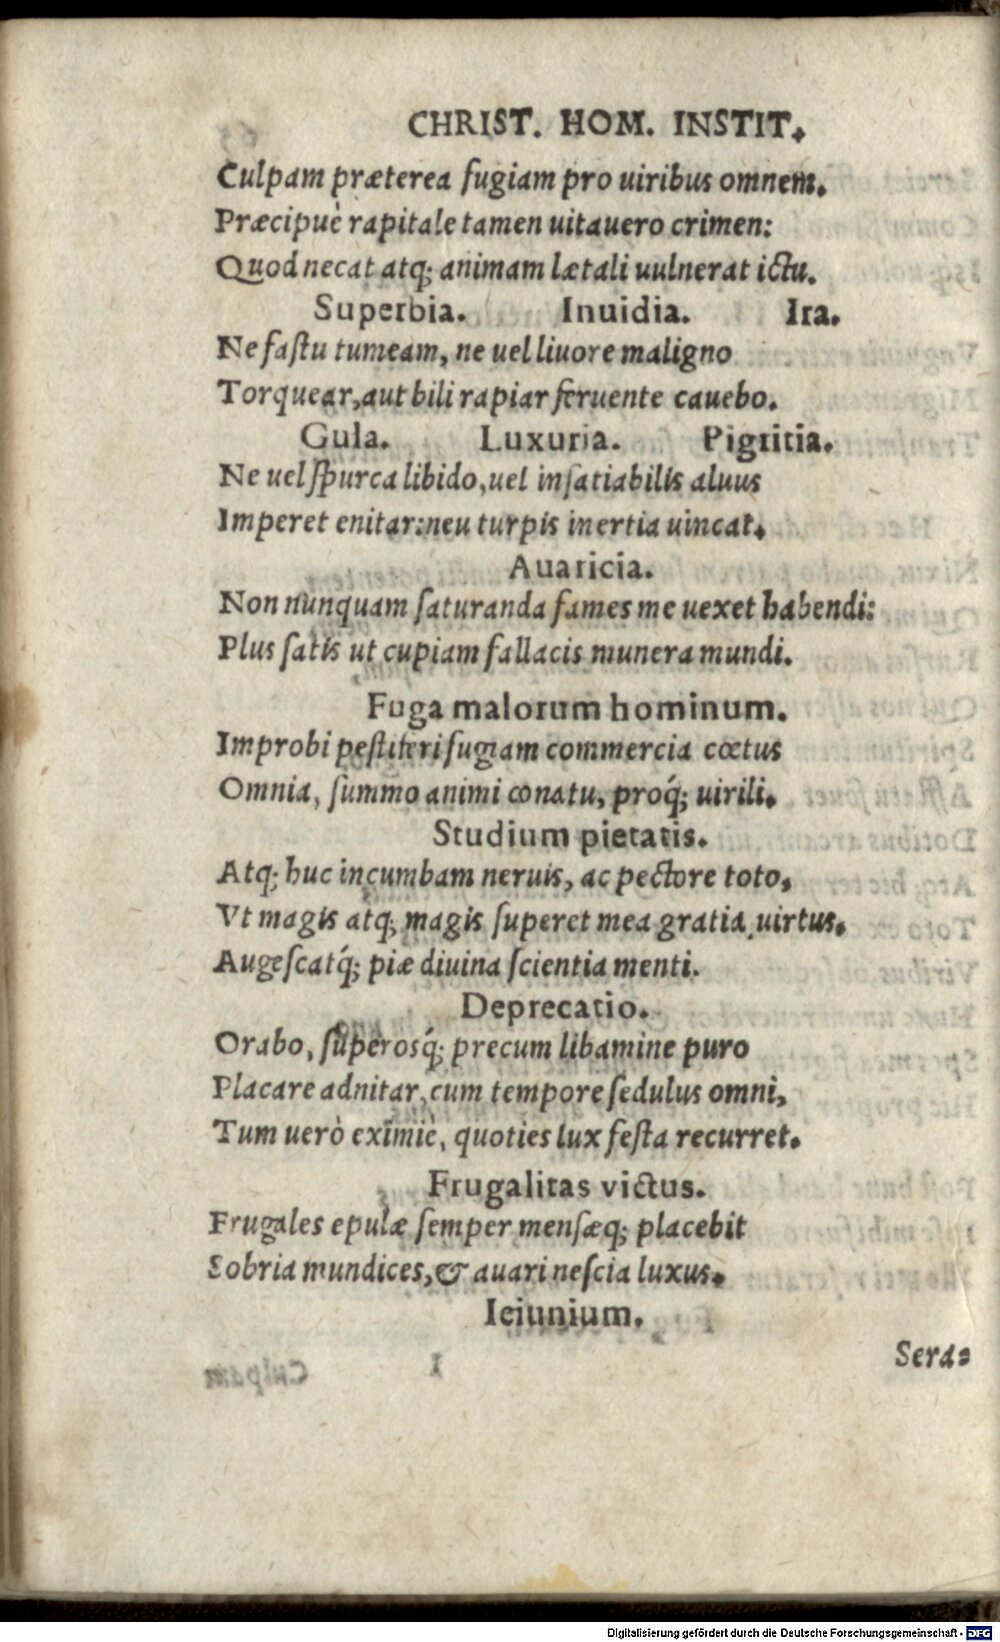 CHRIST. HOM. INSTIT.
Culpam præterea fugiam pro uiribus omnem.
Præcipuè rapitale tamen uitauero crimen:
Quod necat atq; animam lætali uulnerat ictu.
Superbia. Inuidia. Ira.
Ne fastu tumeam, ne uel liuore maligno
Torquear, aut bili rapiar feruente cauebo.
Gula. Luxuria. Pigritia.
Ne uel spurca libido, uel insatiabilis aluus
Imperet enitar: neu turpis inertia uincat.
Auaricia.
Non nunquam saturanda fames me uexet habendi:
Plus satis ut cupiam fallacis munera mundi.
Fuga malorum hominum.
Improbi pestiferi fugiam commercia cœtus
Omnia, summo animi conatu, proq́; uirili.
Studium pietatis.
Atq; huc incumbam neruis, ac pectore toto,
Vt magis atq; magis superet mea gratia, uirtus.
Augescatq́; piæ diuina scientia menti.
Deprecatio.
Orabo, superosq́; precum libamine puro
Placare adnitar, cum tempore sedulus omni,
Tum uerò eximiè, quoties lux festa recurret.
Frugalitas victus.
Frugales epulæ semper mensæq; placebit
Sobria mundices, & auari nescia luxus.
Ieiunium.
Sera=
Digitalisierung gefördert durch die Deutsche Forschungsgemeinschaft - DFG